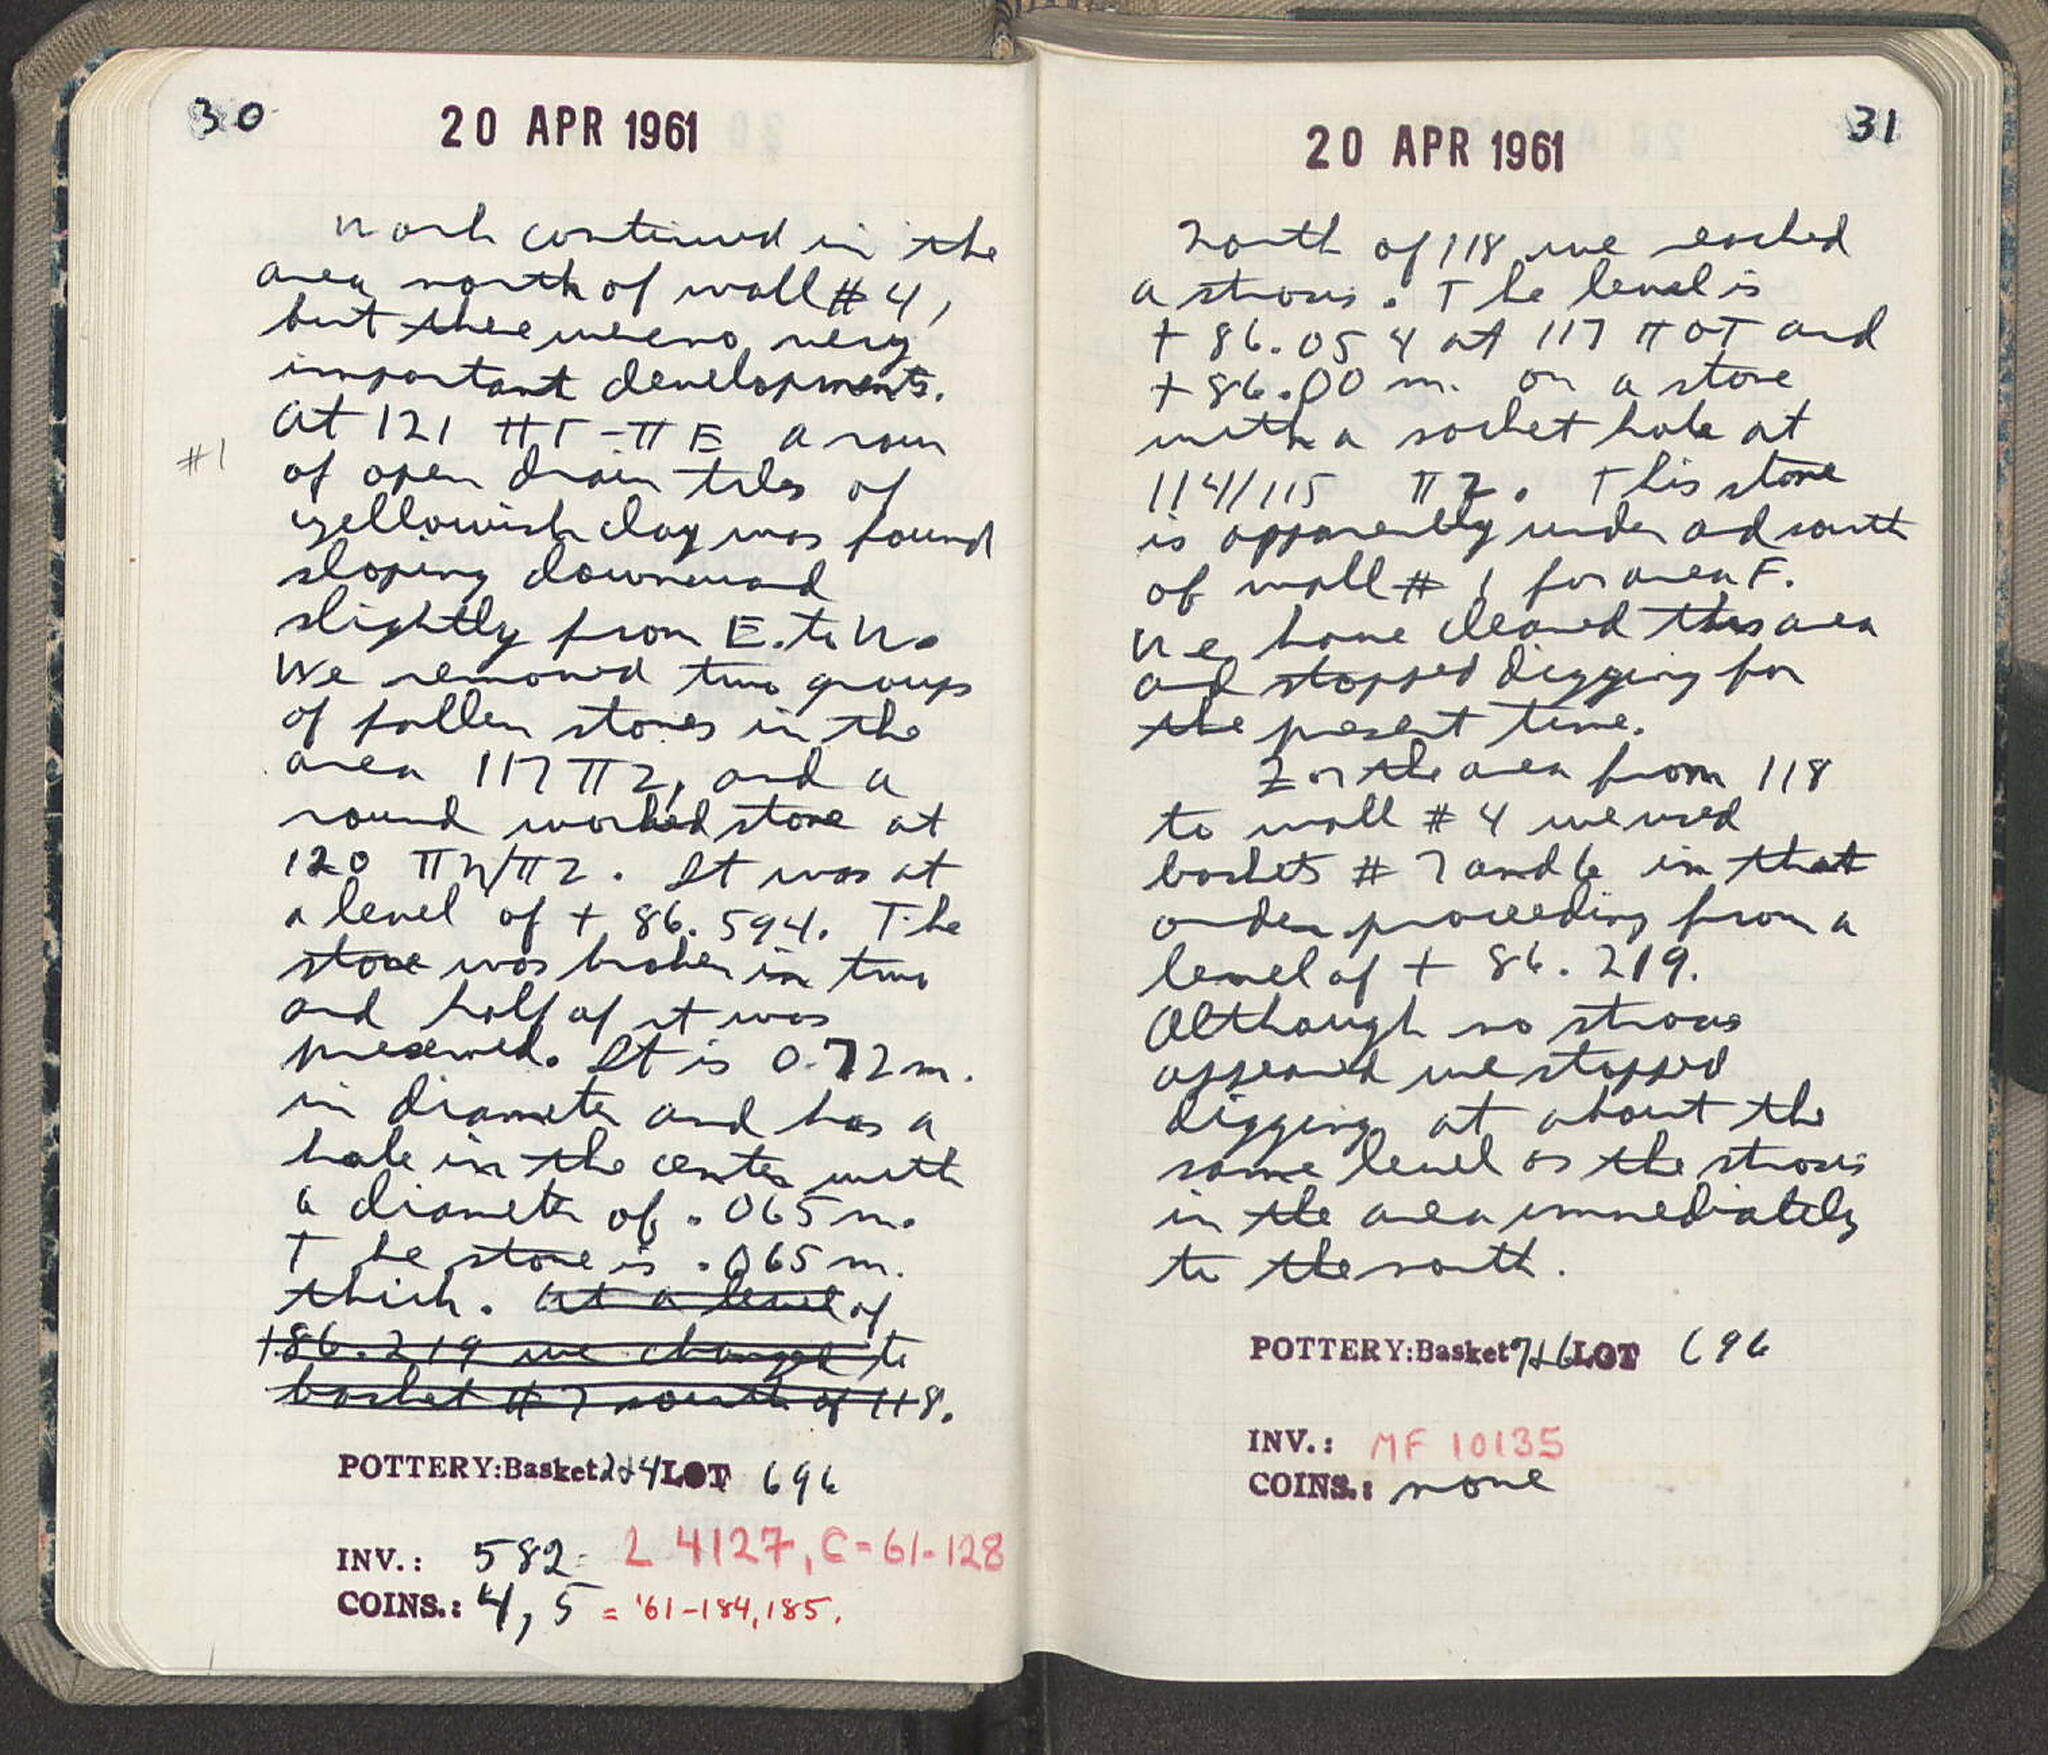 30
20 APR 1961
Work continued in the
area north of wall #4,
but there were no very
important developments.
#1
At 121 ΠΓ-ΠE a row
of open drain tiles of
yellowish clay was found
sloping downward
slightly from E. to W.
We removed two groups
of fallen stones in the
area 117 ΠZ, and a
round worked stone at
120 ΠH/ΠZ. It was at
a level of + 86.594. The
stone was broken in two
and half of it was
preserved. It is 0.72 m.
in diameter and has a
hole in the center with
a diameter of .065 m.
The stone is .065 m.
thick. At a level of
+86.219 we changed to
basket #7 south of 118.
POTTERY: Basket 2+4 LOT 696
INV.: 582 = L 4127, C-61-128
COINS.: 4, 5 = '61-184, 185.
31
20 APR 1961
South of 118 we reached
a stroses. The level is
+ 86.054 at 117 ΠΣT and
+ 86.00 m. on a stone
with a socket hole at
114/115 ΠZ. This stone
is apparently under and south
of wall # 1 for area F.
We have cleaned this area
and stopped digging for
the present time.
In the area from 118
to wall # 4 we used
baskets # 7 and 6 in that
order proceeding from a
level of + 86.219.
Although no stroses
appeared we stopped
digging at about the
same level as the stroses
in the area immediately
to the south.
POTTERY: Basket 7+6 LOT 696
INV.: MF 10135
COINS.: none